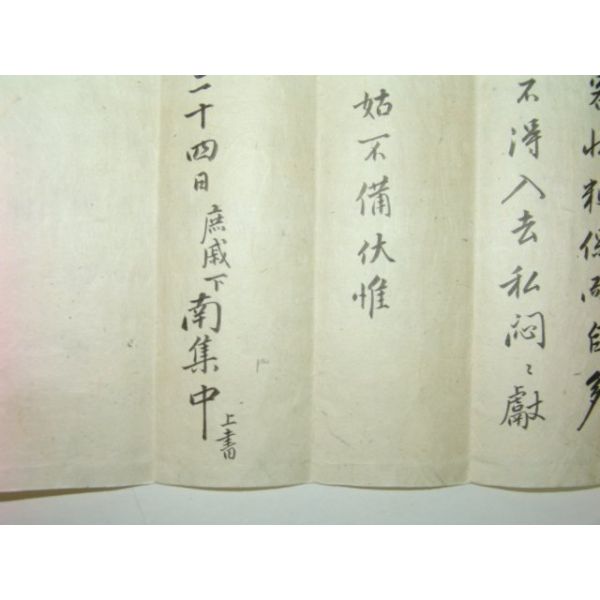 狀粗保而自多
不得入去私悶〻獻
姑不備伏惟
二十四日 庶戚下 南集中 上書